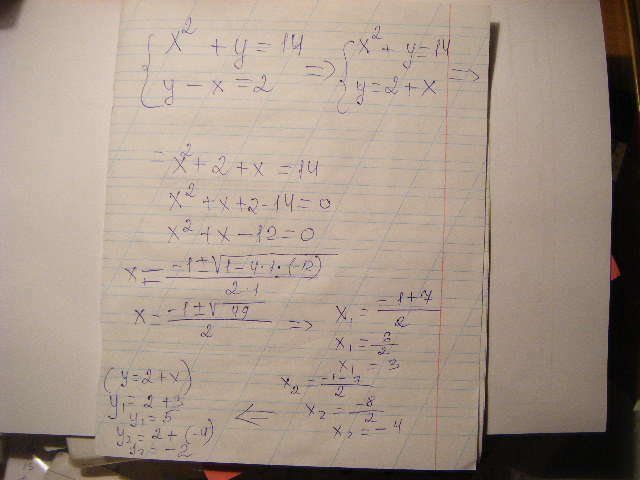 { x² + y = 14 => { x² + y = 14 =>
{ y - x = 2 { y = 2 + x
= x² + 2 + x = 14
x² + x + 2 - 14 = 0
x² + x - 12 = 0
x = (-1 ± √(1 - 4 · 1 · (-12))) / (2 · 1)
x = (-1 ± √49) / 2 => x₁ = (-1 + 7) / 2
x₁ = 6/2
x₁ = 3
x₂ = (-1 - 7) / 2
x₂ = -8/2
x₂ = -4
<=
(y = 2 + x)
y₁ = 2 + 3
y₁ = 5
y₂ = 2 + (-4)
y₂ = -2